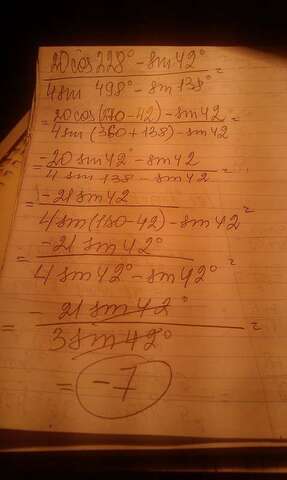 20cos 228° - sin 42°
4sin 498° - sin 138° =
= 20cos(270-42) - sin 42 =
4sin(360+138) - sin 42
= -20 sin 42° - sin 42 =
4 sin 138 - sin 42
= -21 sin 42 =
4 sin(180-42) - sin 42
= -21 sin 42° =
4 sin 42° - sin 42°
= - 21 sin 42° =
3 sin 42°
= -7